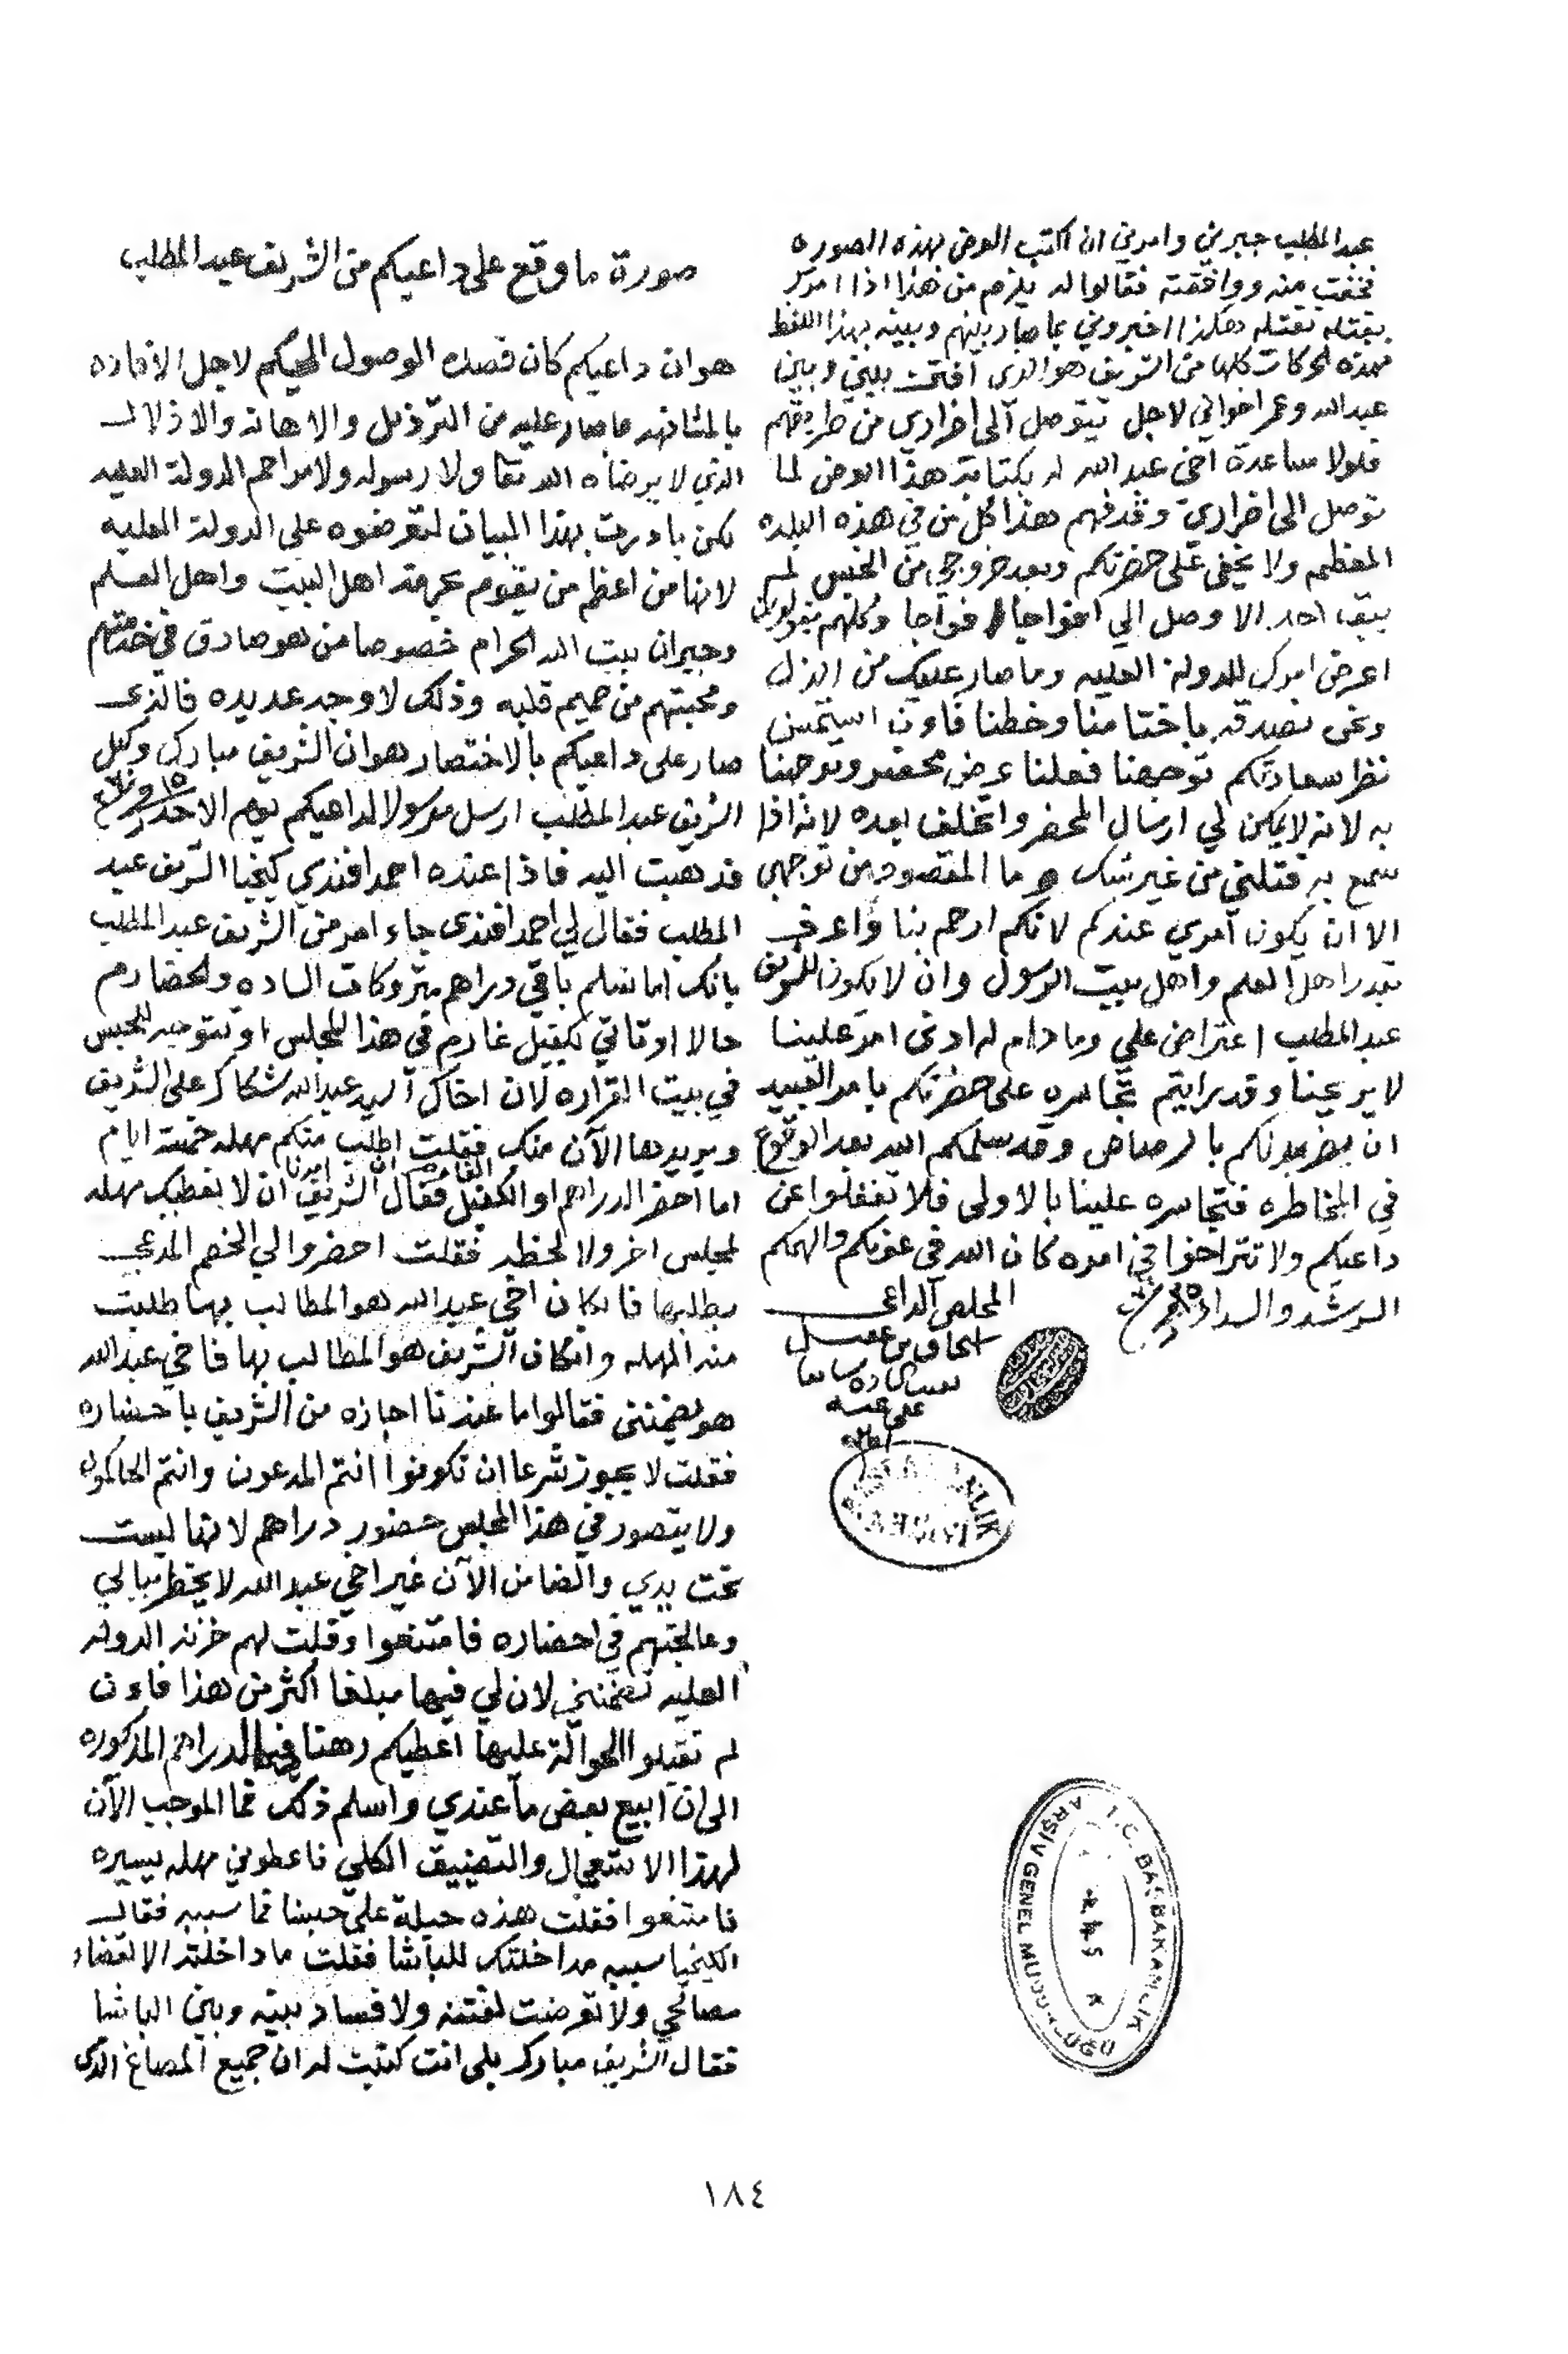 عبد المطلب جبرني وامرني ان اكتب العرض بهذه الصوره
فخفت منه ووافقته فقالوا له يلزم من هذا اذا امرك
بقتله تقتله هكذا اخبروني بما صار بينهم وبينه بهذا اللفظ
فهذه الحركات كلها من الشريف هو الذي افتن بيني وبين
عبد الله وعمر اخواني لاجل يتوصل الى اضراري من طريقهم
فلولا ساعدة اخي عبد الله له بكتابة هذا العرض لما
توصل الى اضراري وقد فهم هذا كل من في هذه البلده
المعظمه ولا يخفى على حضرتكم وبعد خروجي من الحبس لم
يبق احد الا وصل الي افواجا افواجا وكلهم يقولون
اعرض امرك للدولة العليه وما صار عليك من الذل
ونحن نصدقه باختامنا وخطنا فاون استحسن
نظر سعادتكم توجهنا فعلنا عرض محضر وتوجهنا
به لانه لا يمكن لي ارسال المحضر واتخلف بعده لانه اذا
سمع به قتلني من غير شك وما المقصود من توجهي
الا ان يكون امري عندكم لانكم ارحم بنا واعرف
بقدر اهل العلم واهل بيت الرسول وان لا يكون للشريف
عبد المطلب اعتراض علي وما دام له ادنى امر علينا
لا يريحنا وقد رايتم تجاسره على حضرتكم بامر العبيد
ان يضربونكم بالرصاص وقد سلمكم الله بعد الوقوع
في المخاطره فتجاسره علينا بالاولى فلا تغفلوا عن
داعيكم ولا تتراخوا في امره كان الله في عونكم والهمكم
الرشد والسداد
المخلص الداعي
اسحاق بن عقيل
عفي عنه
صورة ما وقع على داعيكم من الشريف عبد المطلب
هو ان داعيكم كان قصده الوصول اليكم لاجل الافاده
بالمشافهه ما صار عليه من الترذيل والاهانة والاذلال
الذي لا يرضاه الله تعا ولا رسوله ولا مراحم الدولة العليه
لكن بادرت بهذا البيان لتعرضوه على الدولة العليه
لانها من اعظم من يقوم بحرمة اهل البيت واهل العلم
وجيران بيت الله الحرام خصوصا من هو صادق في خدمتهم
ومحبتهم من صميم قلبه وذلك لاوجه عديده فالذي
صار على داعيكم بالاختصار هو ان الشريف مبارك وكيل
الشريف عبد المطلب ارسل مرسولا لداعيكم يوم الاحد
فذهبت اليه فاذا عنده احمد افندي كيخيا الشريف عبد
المطلب فقال لي احمد افندي جاء امر من الشريف عبد المطلب
بانك اما تسلم باقي دراهم متروكات الساده والحضارم
حالا او تاتي بكفيل غارم في هذا المجلس او تتوجه للحبس
في بيت القراره لان اخاك السيد عبد الله شكاك على الشريف
ويريدها الآن منك فقلت اطلب منكم مهله خمسة ايام
اما احضر الدراهم او الكفيل الغارم فقال الشريف امرنا ان لا نعطيك مهله
لمجلس اخر ولا لحظه فقلت احضروا لي الخصم المدعي
يطلبها فا نكان اخي عبد الله هو المطالب بها طلبت
منه المهله وانكان الشريف هو المطالب بها فاخي عبد الله
هو يضمنني فقالوا ما عندنا اجازه من الشريف باحضاره
فقلت لا يجوز شرعا ان تكونوا انتم المدعون وانتم الحاكمون
ولا يتصور في هذا المجلس حضور دراهم لانها ليست
تحت يدي والضامن الآن غير اخي عبد الله لا يخطر ببالي
وعالجتهم في احضاره فامتنعوا وقلت لهم خزنة الدوله
العليه تضمنني لان لي فيها مبلغا اكثر من هذا فاون
لم تقبلوا الحوالة عليها اعطيكم رهنا في الدراهم المذكوره
الى ان ابيع بعض ما عندي واسلم ذلك فما الموجب الآن
لهذا الاستعجال والتضييق الكلي فاعطوني مهله يسيره
فامتنعوا فقلت هذه حيلة على حبسنا فما سببه فقال
الكيخيا سببه مداخلتك للباشا فقلت ما داخلته الا لقضاء
مصالحي ولا تعرضت لفتنه ولا فساد بينه وبين الباشا
فقال الشريف مبارك بلى انت كتبت له ان جميع المصاغ الذي
١٨٤